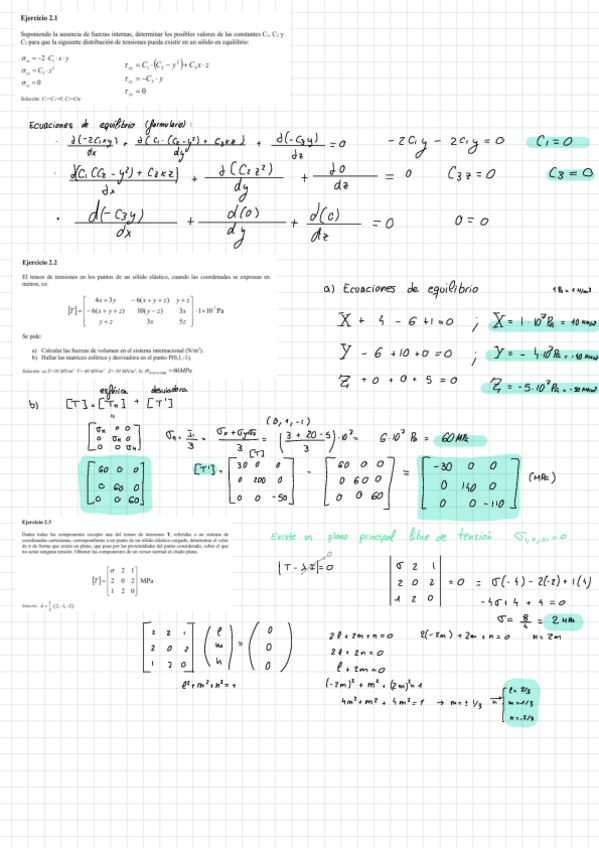 Ejercicio 2.1
Suponiendo la ausencia de fuerzas internas, determinar los posibles valores de las constantes C₁, C₂ y
C₃ para que la siguiente distribución de tensiones pueda existir en un sólido en equilibrio:
σxx = -2·C₁·x·y
τxy = C₁·(C₂ - y²) + C₃x·z
σyy = C₂·z²
τxz = -C₃·y
σzz = 0
τyz = 0
Solución: C₁=C₃=0; C₂=Cte
Ecuaciones de equilibrio (formulario):
· ∂(-2C₁xy)/∂x + ∂(C₁·(C₂-y²) + C₃xz)/∂y + ∂(-C₃y)/∂z = 0 -2C₁y - 2C₁y = 0 C₁ = 0
· ∂(C₁(C₂-y²) + C₃xz)/∂x + ∂(C₂z²)/∂y + ∂0/∂z = 0 C₃z = 0 C₃ = 0
· d(-C₃y)/dx + d(0)/dy + d(0)/dz = 0 0 = 0
Ejercicio 2.2
El tensor de tensiones en los puntos de un sólido elástico, cuando las coordenadas se expresan en
metros, es:
[T] = [4x+3y -6(x+y+z) y+z
-6(x+y+z) 10(y-z) 3x
y+z 3x 5z] ·1×10⁷ Pa
Se pide:
a) Calcular las fuerzas de volumen en el sistema internacional (N/m³).
b) Hallar las matrices esférica y desviadora en el punto P(0,1,-1).
a) Ecuaciones de equilibrio
X + 4 - 6 + 1 = 0 ; X = 1·10⁷ Pa = 10
Y - 6 + 10 + 0 = 0 ; Y = -4·10⁷ Pa = -40
Z + 0 + 0 + 5 = 0 ; Z = -5·10⁷ Pa = -50
b) [T] = [Tn] + [T']
esférica desviadora
[σn 0 0
0 σn 0
0 0 σn]
(0, 1, -1)
3 + 20 - 5
6·10⁷ Pa = 60 MPa
[60 0 0
0 60 0
0 0 60]
[T]
[T'] = [30 0 0
0 200 0
0 0 -50] - [60 0 0
0 60 0
0 0 60] = [-30 0 0
0 140 0
0 0 -110] (MPa)
Ejercicio 2.3
Dadas todas las componentes excepto una del tensor de tensiones T, referidas a un sistema de
coordenadas cartesianas, correspondiente a un punto de un sólido elástico cargado, determinar el valor
de σ de forma que exista un plano, que pase por las proximidades del punto considerado, sobre el que
no actúe ninguna tensión. Obtener las componentes de un versor normal al citado plano.
[T] = [σ 2 1
2 0 2
1 2 0] MPa
Existe un plano principal libre de tensión
|T - λI| = 0
|σ 2 1
2 0 2
1 2 0| = 0 = σ(-4) - 2(-2) + 1(4)
-4σ + 4 + 4 = 0
σ = 8/4 = 2 MPa
[2 2 1
2 0 2
1 2 0] (l m n) = (0 0 0)
l² + m² + n² = 1
2l + 2m + n = 0 2(-2m) + 2m + n = 0 n = 2m
2l + 2n = 0
l + 2m = 0
(-2m)² + m² + (2m)² = 1
4m² + m² + 4m² = 1 → m = ± 1/3 → n
l = 2/3
m = -1/3
n = -2/3